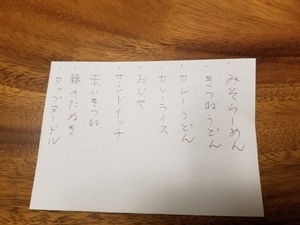 ・みそらーめん
・きつねうどん
・カレーうどん
・カレーライス
・おじや
・サンドイッチ
・赤いきつね
・緑のたぬき
・カップヌードル